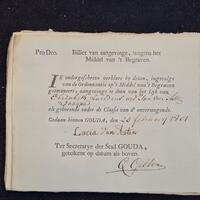 Pro Deo. Billet van aangevinge, wegens het
Middel van 't Begraven.
IK ondergeschreven verklare by dezen, ingevolge
van de Ordonnantie op 't Middel van 't Begraven
geëmaneert, aangevinge te doen van het Lyk van
Elizabeth
als gehorende onder de Classis van f onvermogende.
Gedaan binnen GOUDA, den 20 February 1801
Lucia Van
Ter Secretarye der Stad GOUDA,
geteekent op datum als boven.